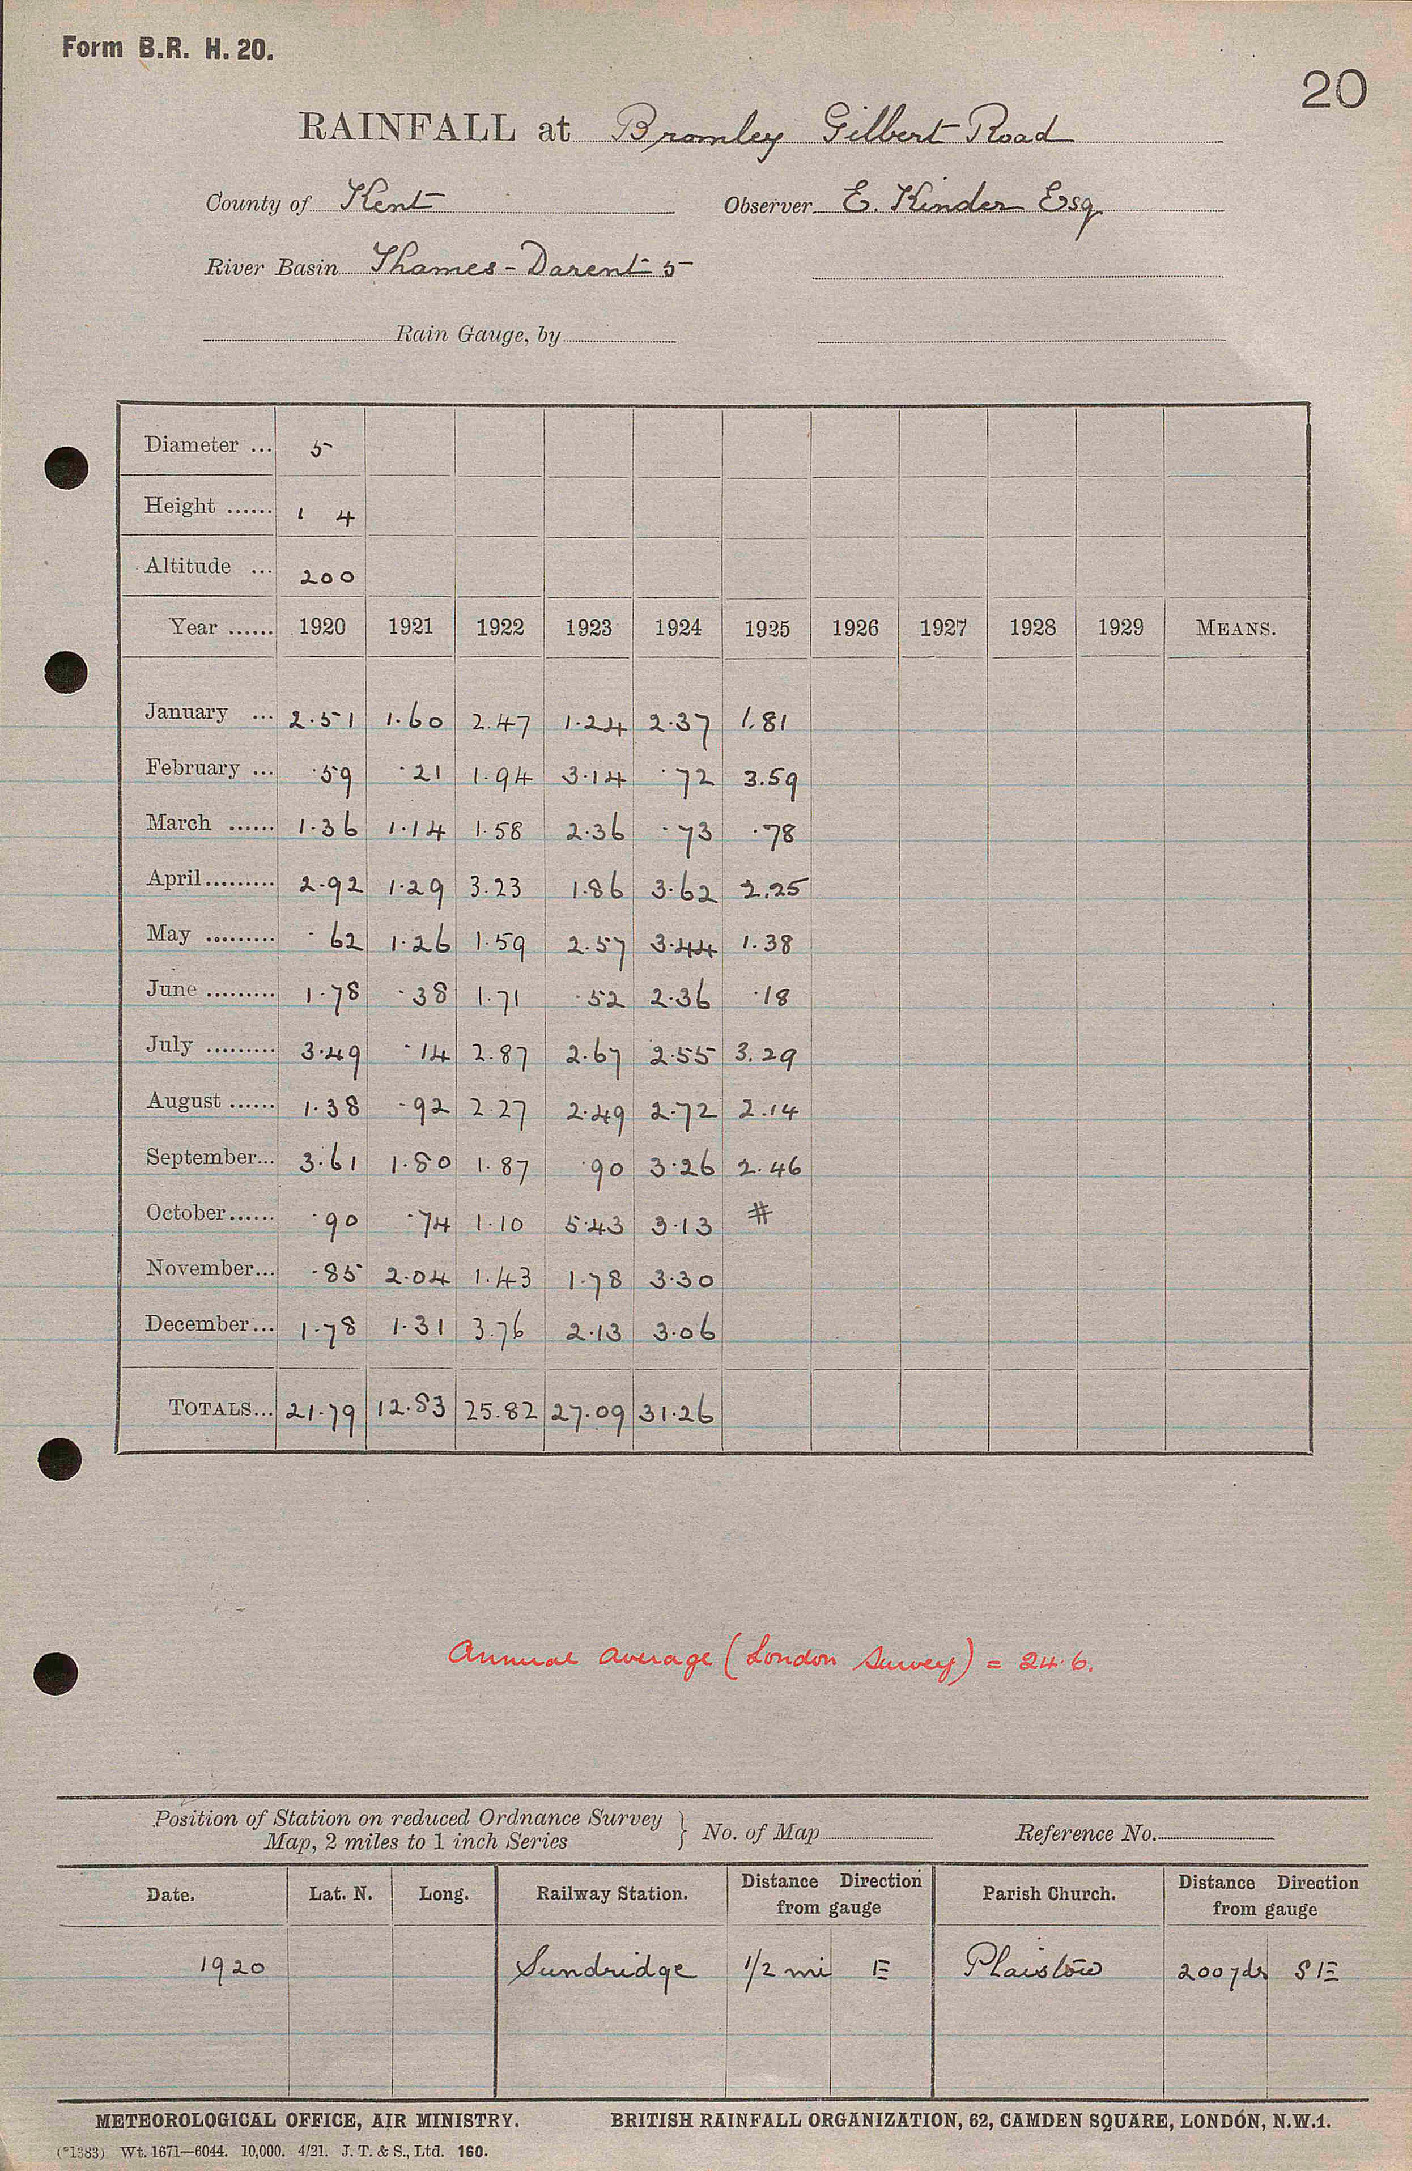 Form B.R. H. 20.
20
RAINFALL at Bromley Gilbert Road
County of Kent Observer E. Kinder Esq
River Basin Thames - Darent 5
Rain Gauge, by
Diameter ... 5
Height ...... 1 4
Altitude ... 200
Year ...... 1920 1921 1922 1923 1924 1925 1926 1927 1928 1929 MEANS.
January ... 2.51 1.60 2.47 1.24 2.37 1.81
February ... .59 .21 1.94 3.14 .72 3.59
March ...... 1.36 1.14 1.58 2.36 .73 .78
April ......... 2.92 1.29 3.23 1.86 3.62 2.25
May ......... .62 1.26 1.59 2.57 3.44 1.38
June ......... 1.78 .38 1.71 .52 2.36 .18
July ......... 3.49 .14 2.87 2.67 2.55 3.29
August ...... 1.38 .92 2 27 2.49 2.72 2.14
September... 3.61 1.80 1.87 .90 3.26 2.46
October...... .90 .74 1.10 5.43 3.13 #
November... .85 2.04 1.43 1.78 3.30
December... 1.78 1.31 3.76 2.13 3.06
TOTALS... 21.79 12.83 25.82 27.09 31.26
Annual average (London Survey) = 24.6.
Position of Station on reduced Ordnance Survey
Map, 2 miles to 1 inch Series } No. of Map Reference No.
Date. Lat. N. Long. Railway Station. Distance Direction from gauge Parish Church. Distance Direction from gauge
1920 Sundridge 1/2 mi E Plaistow 200 yds SE
METEOROLOGICAL OFFICE, AIR MINISTRY. BRITISH RAINFALL ORGANIZATION, 62, CAMDEN SQUARE, LONDON, N.W.1.
(*1383) Wt. 1671—6044. 10,000. 4/21. J. T. & S., Ltd. 160.